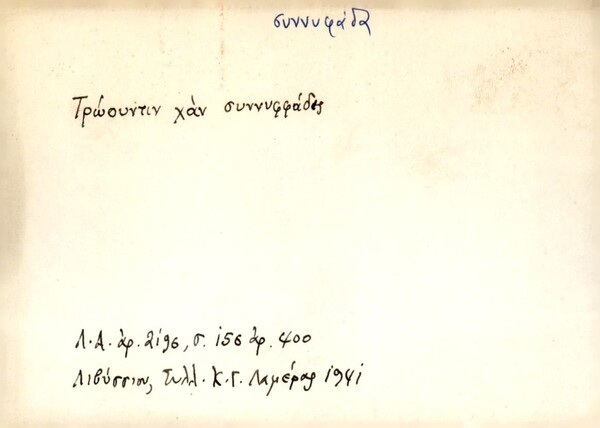 συννυφάδα
Τρώουντιν χὰν συννυφφάδες
Λ.Α. ἀρ. 2196, σ. 156 ἀρ. 400
Λιβύσσιον, Συλλ. Κ.Γ. Λαμέρας 1941